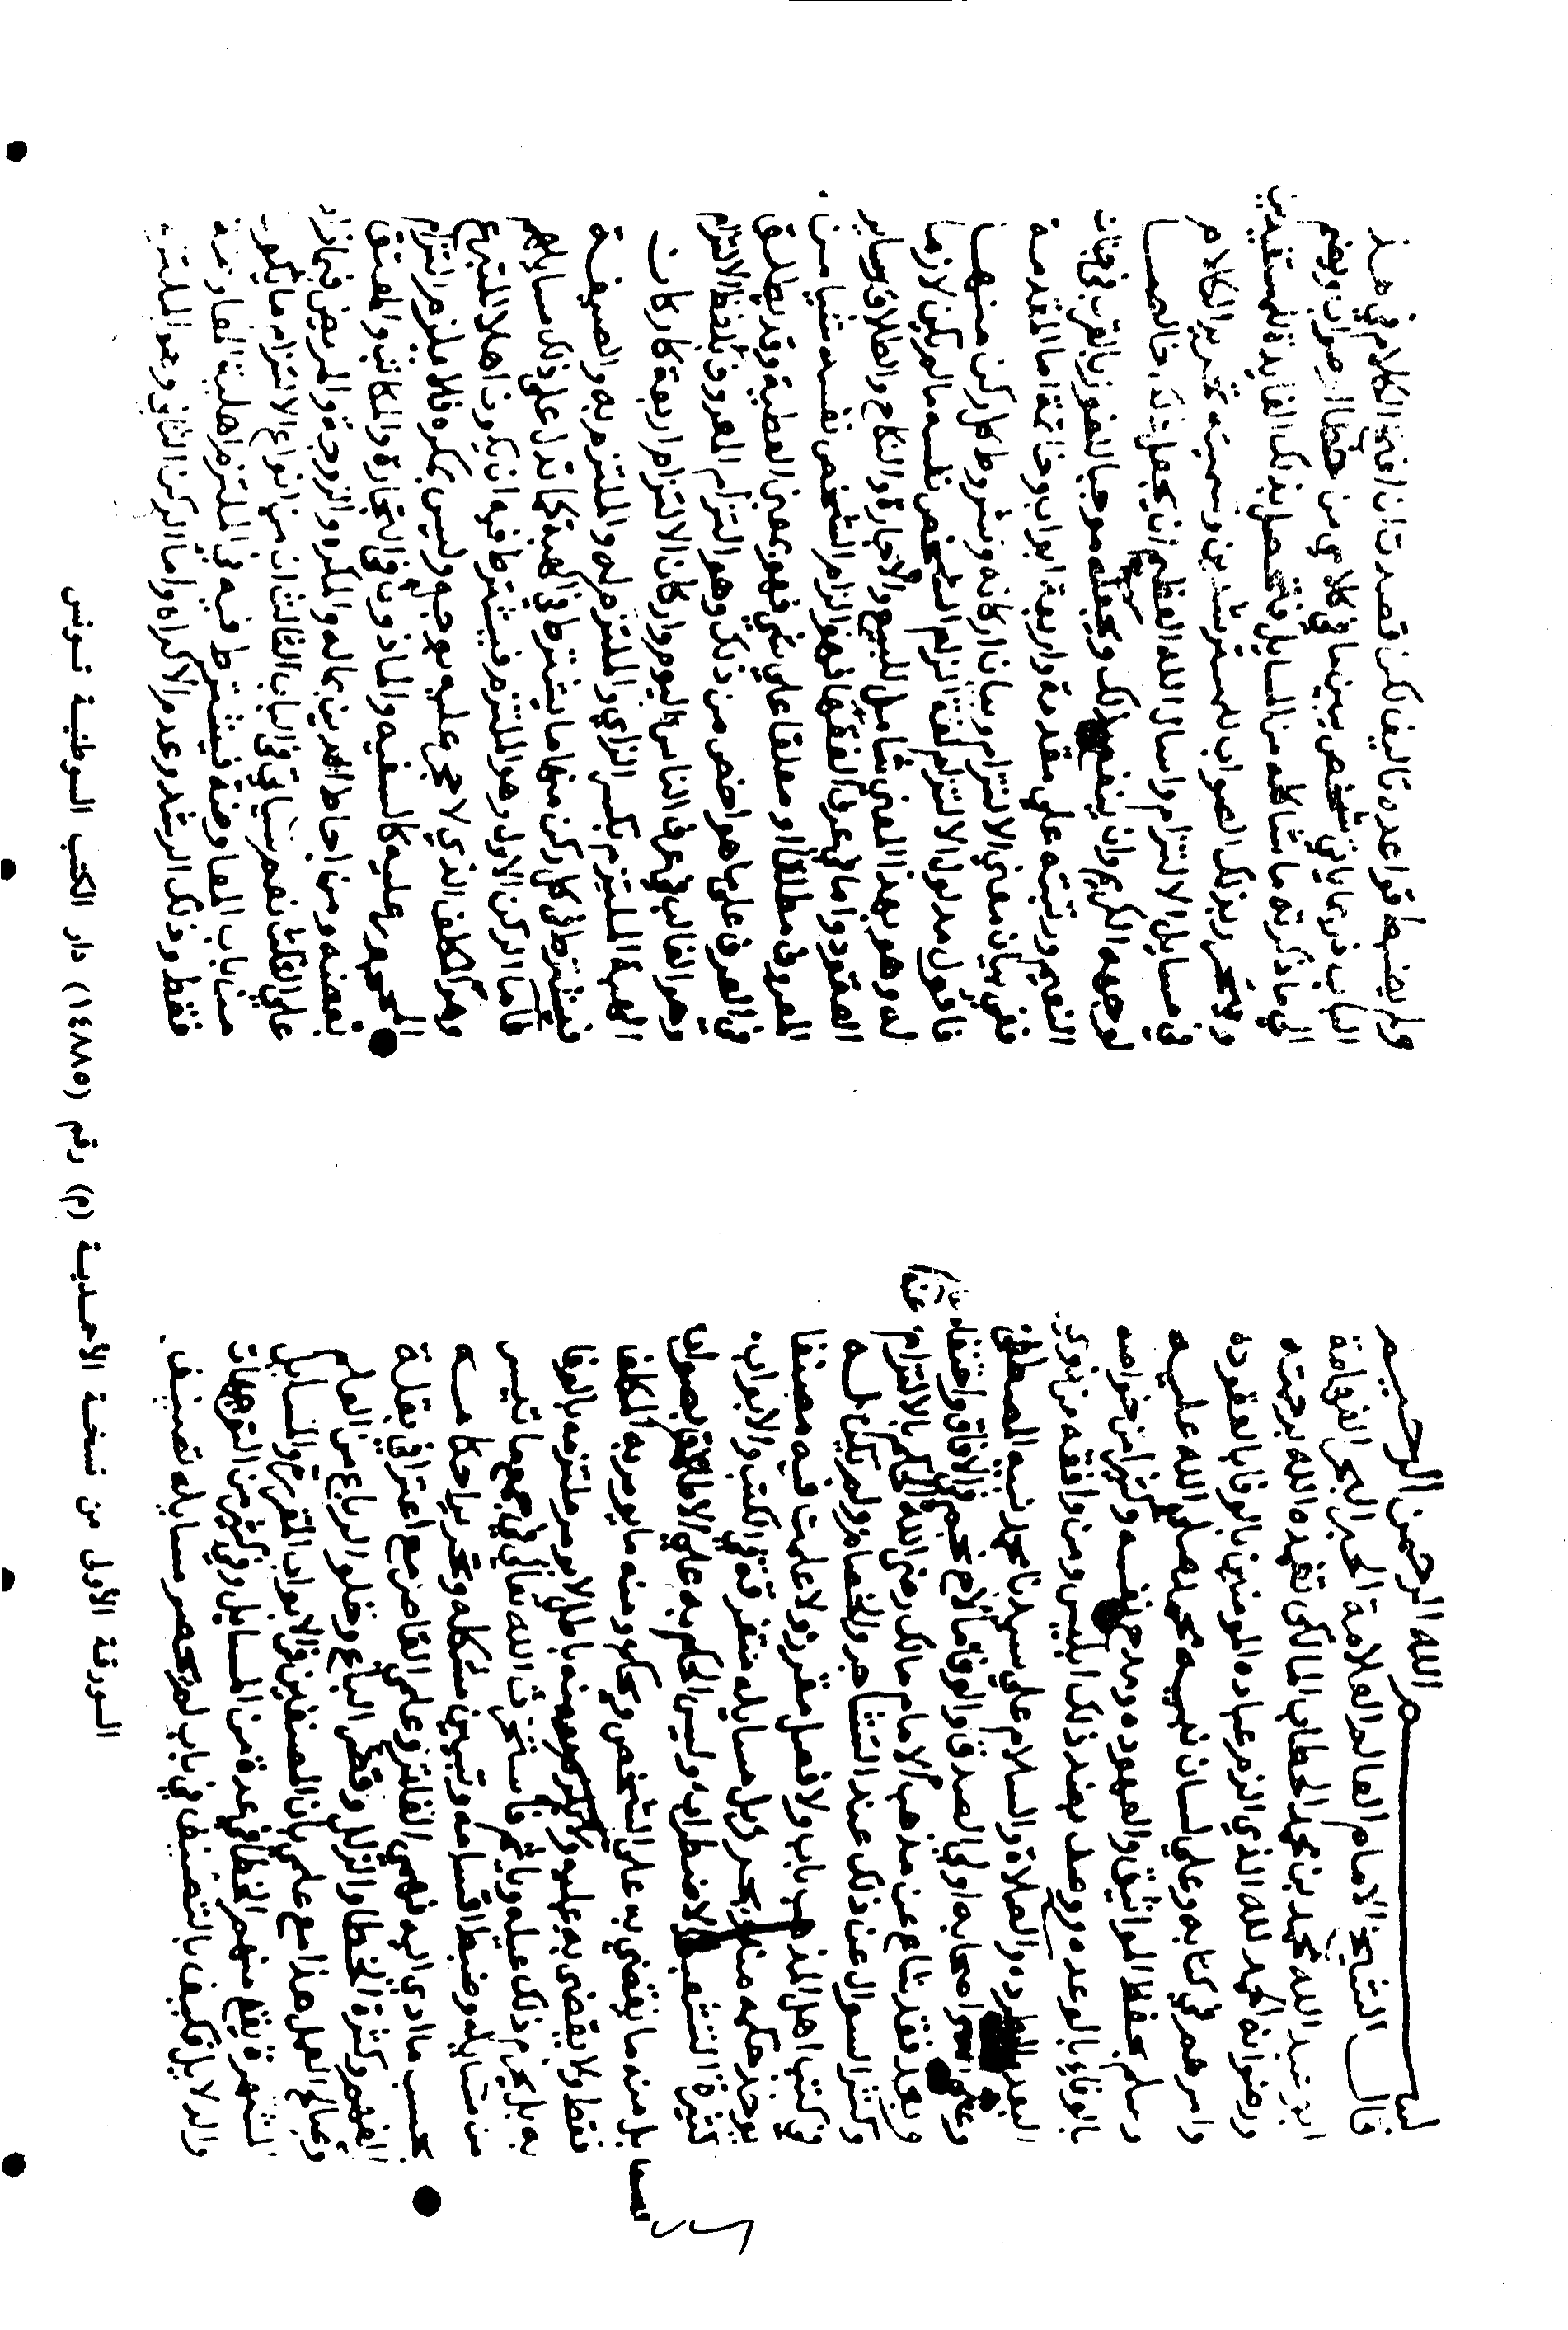 بسم الله الرحمن الرحيم
قال الشيخ الامام العالم العلامة الحبر البحر الفهامة
ابو عبد الله محمد بن محمد الحطاب المالكى تغمده الله برحمته
ورضوانه الحمد لله الذي الزم عباده المومنين بالوفا بالعقود
وامرهم في كتابه وعلى لسان نبيه محمد صلى الله عليه
وسلم بحفظ المواثيق والعهود ومدح نفسه وكثيرا من خواصه
بالوفاء بالوعد ووصف بضد ذلك ابليس ومن وافقه من ذوي
البعد والطرد والصلاة والسلام على سيدنا محمد نبيه المصطفى
وعلى اصحابه اولي الصدق والوفا ما لاح نجم في الافاق واختفى
وبعد فقد شاع عن مذهب الامام مالك رضي الله عنه الحكم بالالتزام
وكثر السوال عن ذلك عند التشاجر والخصام ولم يكن له
في كتب اهل المذهب باب ولا فصل مقرر ولا علمت فيه مصنفا
يوخذ حكمه منه ويحرر بل مسايله متفرقة في الكتب والابواب
كثيرة التشعب والاضطراب وليس الحكم به على الاطلاق بصواب
بل منه ما يقضي به على الشخص ويحكم ومنه ما يومر به المكلف
فقط ولا يقضى به عليه ومنه باطل لا يومر ملتزمه بالوفا
به بل يحرم ذلك عليه وياثم فاستخرت الله تعالى في جمع ما تيسر
من مسايله وضبط اقسامه وتبيين مشكله وتحرير احكامه
بحسب ما ادى اليه فهمي الفاتر وعلمي القاصر مع اعترافي بقلة
الفهم وكثرة الخطا والزلل وقصر الباع وخلو الرباع من العلم
وصالح العمل هذا مع علمي بان المصنفين في الابواب المقررة والمسايل
الشهيرة يقع منهم الخطا في عدة من المسايل وفي كثير من التوجيهات
والدلايل فكيف بالتصنيف في باب لم تحصر مسايله بتصنيف
ولم يضبط قواعده تاليف لكن قصدت ان افتح الكلام في هذا
الباب فربما ياتي شخص يبين ما في كلامي من خطا او صواب ويضم
الى ما ذكرته ما شاكله من المسايل فتحصل بذلك الفايدة للمستفيدين
وتحرير ذلك الصواب للمسترشدين وسميته تحرير الكلام
في مسايل الالتزام واسال الله العظيم ان يجعل ذلك خالصا
لوجهه الكريم وان ينفع بذلك ويجعله موجبا للفوز بالقرب في جنات
النعيم ورتبته على مقدمة واربعة ابواب وخاتمة اما المقدمة
ففي بيان معنى الالتزام وبيان اركانه وشروط كل ركن منها
فاقول مدلول الالتزام لغة الزام الشخص نفسه ما لم يكن لازما
له وهو بهذا المعنى شامل للبيع والاجارة والنكاح والطلاق وساير
العقود واما في عرف الفقها فهو الزام الشخص نفسه شيا من
المعروف مطلقا او معلقا على شي فهو بمعنى العطية وقد يطلق
في العرف على ما هو اخص من ذلك وهو التزام المعروف بلفظ الالتزام
وهو الغالب في عرف الناس اليوم واركان الالتزام اربعة كاركان
الهبة الملتزم بكسر الزاي والملتزم له والملتزم به والصيغة
فيشترط في كل ركن منها ما يشترط في الهبة كما تدل على ذلك مسايلهم
فاما الركن الاول وهو الملتزم فيشترط فيه ان يكون اهلا للتبرع
وهو المكلف الذي لا حجر عليه بوجه وليس بمكره فلا يلزم التزام
المحجور عليه كالسفيه والماذون في التجارة والمكاتب والمعتق
بعضه ومن احاط الدين بماله والمكره والزوجة والمريض فيما زاد
على الثلث نعم سياتي في الباب الثالث ان من انواع الالتزام ما يكون
من باب المعاوضة فيشترط فيه في الملتزم اهلية المعاوضة
فقط وذلك الرشد وعدم الاكراه واما الركن الثاني وهو الملتزم
الورقة الأولى من نسخة الأحمدية (م) رقم (١٤٨٨٥) دار الكتب الوطنية تونس